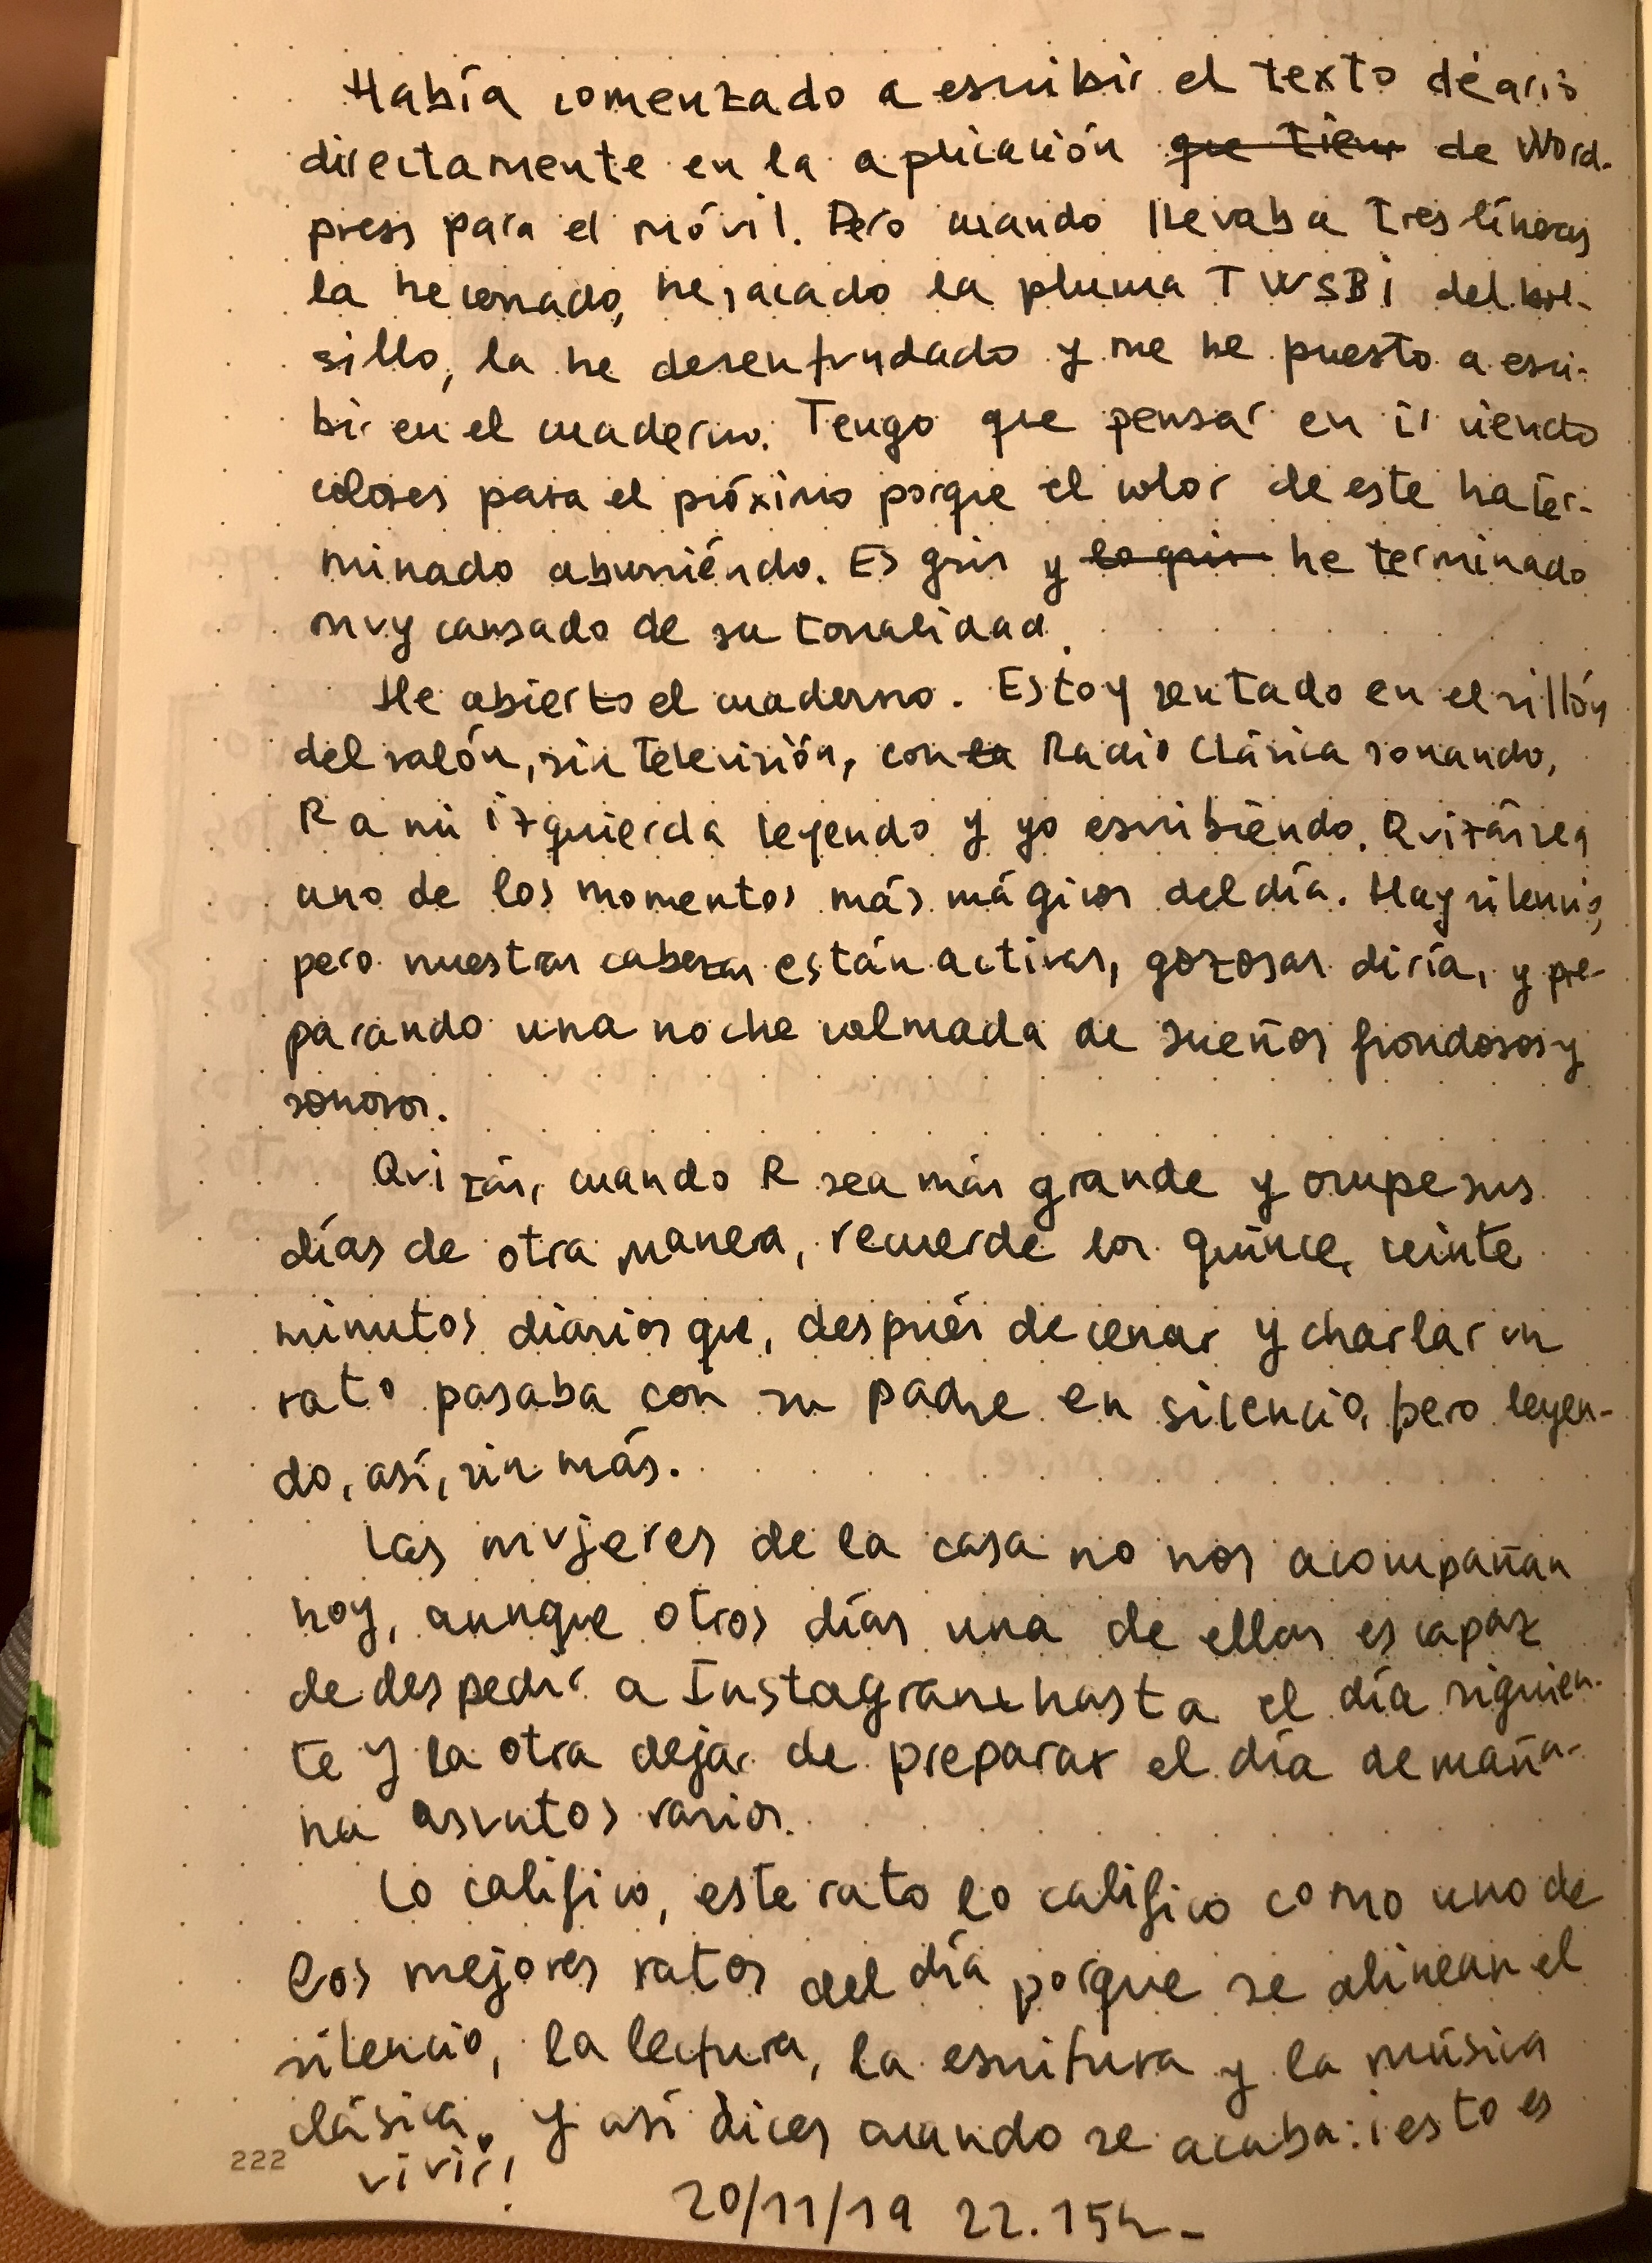 Había comenzado a escribir el texto diario
directamente en la aplicación que tiene de Word-
press para el móvil. Pero cuando llevaba tres líneas
la he cerrado, he sacado la pluma TWSBi del bol-
sillo, la he desenfundado y me he puesto a escri-
bir en el cuaderno. Tengo que pensar en ir viendo
colores para el próximo porque el color de este ha ter-
minado aburriéndo. Es gris y lo gris he terminado
muy cansado de su tonalidad.
He abierto el cuaderno. Estoy sentado en el sillón
del salón, sin televisión, con la Radio Clásica sonando,
R a mi izquierda leyendo y yo escribiendo. Quizás sea
uno de los momentos más mágicos del día. Hay silencio,
pero nuestras cabezas están activas, gozosas diría, y pre-
parando una noche colmada de sueños frondosos y
sonoros.
Quizás, cuando R sea más grande y ocupe sus
días de otra manera, recuerde los quince, veinte
minutos diarios que, después de cenar y charlar un
rato pasaba con su padre en silencio, pero leyen-
do, así, sin más.
Las mujeres de la casa no nos acompañan
hoy, aunque otros días una de ellas es capaz
de despedir a Instagram hasta el día siguien-
te y la otra dejar de preparar el día de maña-
na asuntos varios.
Lo califico, este rato lo califico como uno de
los mejores ratos del día porque se alinean el
silencio, la lectura, la escritura y la música
clásica. Y así dices cuando se acaba: ¡esto es
vivir!
222
20/11/19 22.15h-